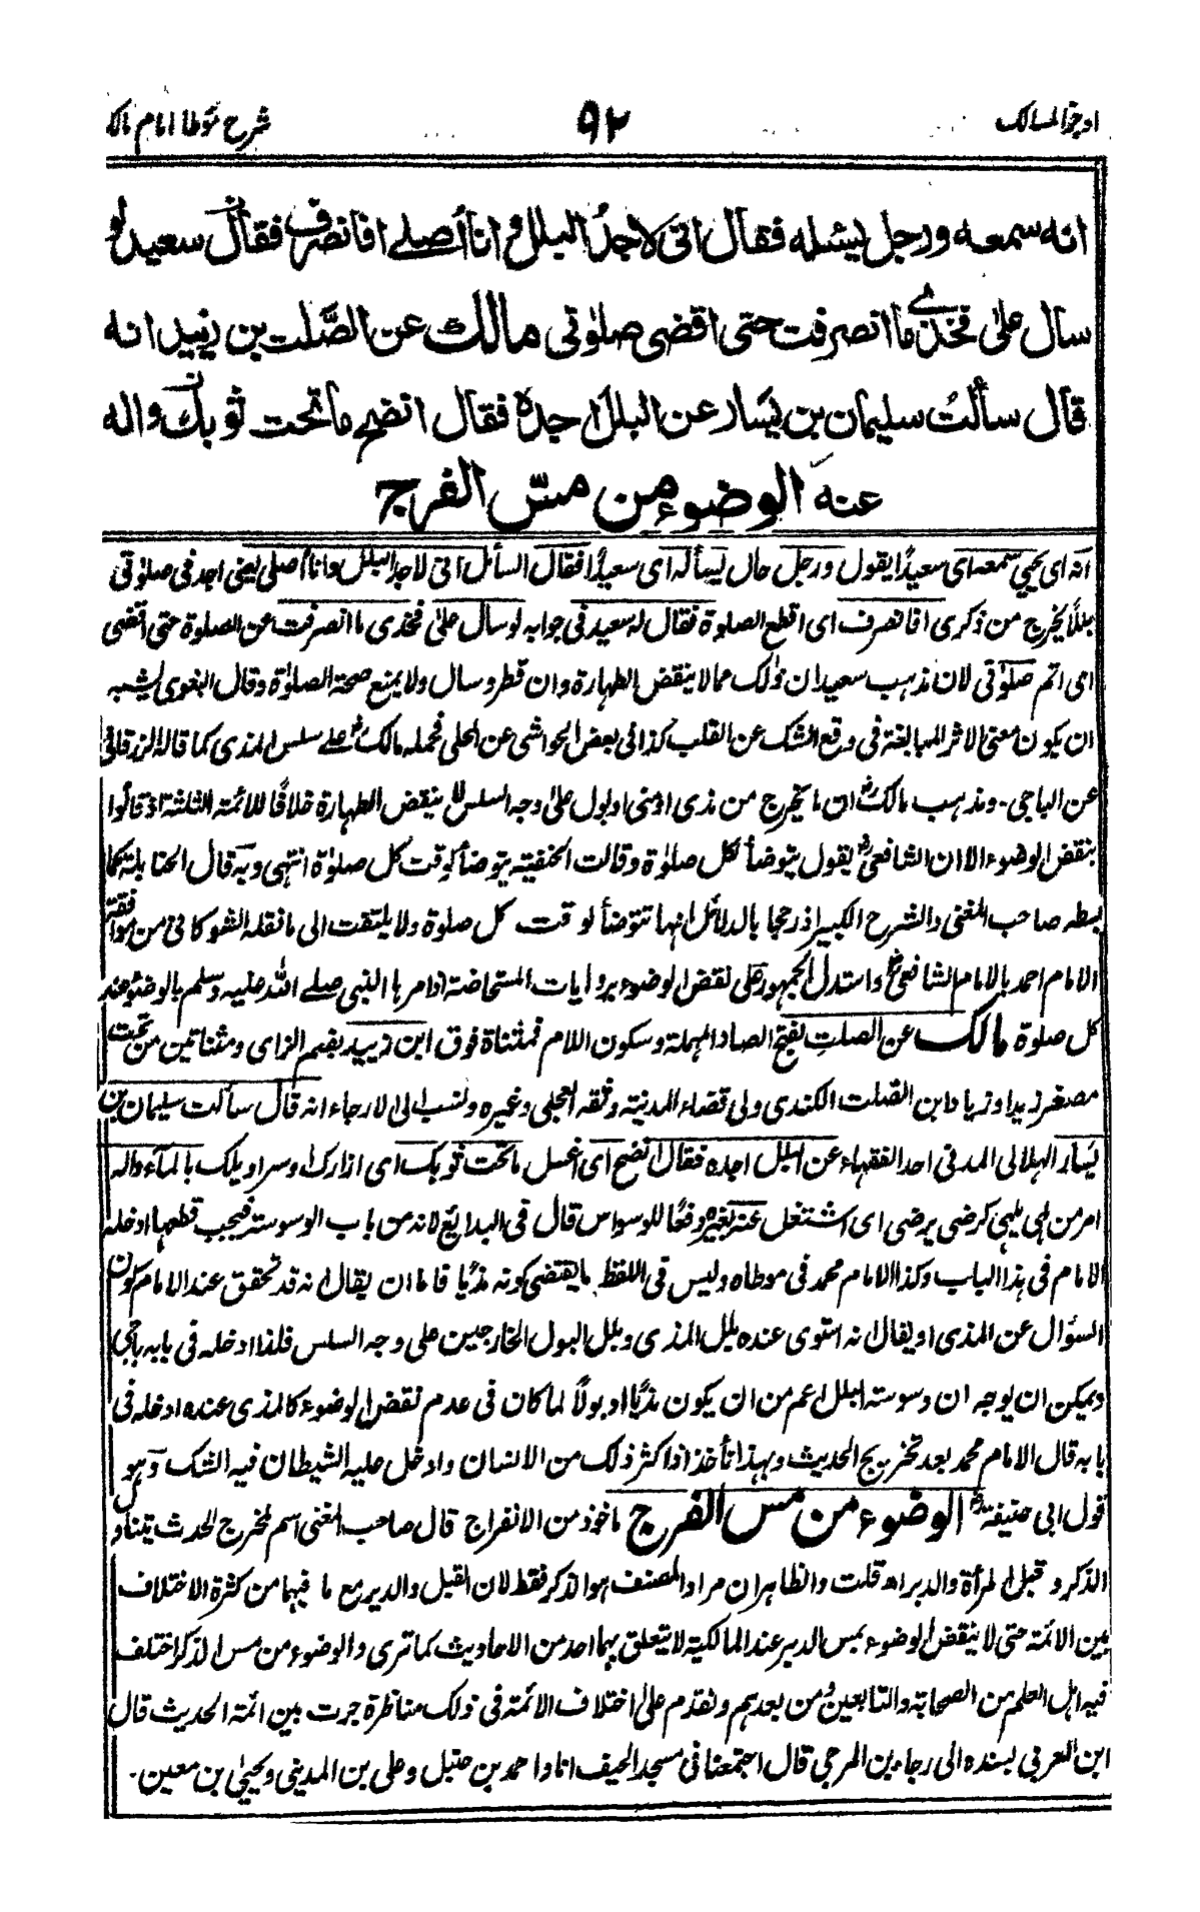 اوجز المسالك ٩٢ شرح موطا امام مالك
انه سمعه ورجل يسئله فقال انى لاجد البلل وانا اصلے افانصرف فقال سعيد لو
سال على فخذى ما انصرفت حتى اقضى صلوتى مالك عن الصَّلت بن زييد انه
قال سألتُ سليمان بن يَسار عن البلل اجده فقال انضح ما تحت ثوبك واله
عنه الوضوء من مسّ الفرج
انه اى يحيى سمعه اى سعيدًا يقول ورجل حال يسأله اى سعيدًا فقال السائل انى لاجد البلل وانا اصلى يعنى اجد فى صلوتى
بللًا يخرج من ذكرى افانصرف اى اقطع الصلوة فقال له سعيد فى جوابه لو سال على فخذى ما انصرفت عن الصلوة حتى اقضى
اى اتم صلوتى لان مذهب سعيد ان ذلك مما لا ينقض الطهارة وان قطر وسال ولا يمنع صحة الصلوٰة وقال البغوى يشبه
ان يكون معنى الاثر المبالغة فى دفع الشك عن القلب كذا فى بعض الحواشى عن المحلى فحمله مالك على سلس المذى كما قاله الزرقانى
عن الباجى - ومذهب مالك ان ما يخرج من مذى او منى او بول على وجه السلس لا ينقض الطهارة خلافًا للائمة الثلثة اذ قالوا
بنقض الوضوء الا ان الشافعى يقول يتوضأ لكل صلوٰة وقالت الحنفية يتوضأ لوقت كل صلوٰة انتهى وبه قال الحنابلة كما
بسطه صاحب المغنى والشرح الكبير اذ رجحا بالدلائل انها تتوضأ لوقت كل صلوة ولا يلتفت الى ما نقله الشوكانى من موافقة
الامام احمد بالامام الشافعى واستدل الجمهور على نقض الوضوء بروايات المستحاضة اذ امرها النبى صلے الله عليه وسلم بالوضوء عند
كل صلوة مالك عن الصلت بفتح الصاد المهملة وسكون اللام فمثناة فوق ابن زييد بضم الزاى ومثناتين من تحت
مصغر زيد او زياد ابن الصلت الكندى ولى قضاء المدينة وثقه العجلى وغيره ونسب الى الارجاء انه قال سألت سليمان بن
يسار الهلالى المدنى احد الفقهاء عن البلل اجده فقال انضح اى اغسل ما تحت ثوبك اى ازارك وسراويلك بالماء واله
امر من لهى يلهى كرضى يرضى اى اشتغل عنه بغيره دفعًا للوسواس قال فى البدائع لانه من باب الوسوسة فيجب قطعها ادخله
الامام فى هذا الباب وكذا الامام محمد فى موطاه وليس فى اللفظ ما يقتضى كونه مذيًا فاما ان يقال انه قد تحقق عند الامام كون
السؤال عن المذى او يقال انه استوى عنده بلل المذى وبلل البول الخارجين على وجه السلس فلذا ادخله فى بابه باجى
ويمكن ان يوجه ان وسوسة البلل اعم من ان يكون مذيًا او بولًا لما كان فى عدم نقض الوضوء كالمذى عنده ادخله فى
بابه قال الامام محمد بعد تخريج الحديث وبهذا نأخذ اذا كثر ذلك من الانسان وادخل عليه الشيطان فيه الشك وهو
قول ابى حنيفة الوضوء من مس الفرج ماخوذ من الانفراج قال صاحب المغنى اسم لمخرج الحدث يتناول
الذكر وقبل المرأة والدبر اه قلت والظاهر ان مراد المصنف هو الذكر فقط لان القبل والدبر مع ما فيهما من كثرة الاختلاف
بين الائمة حتى لا ينقض الوضوء بمس الدبر عند المالكية لا يتعلق بهما احد من الاحاديث كما ترى والوضوء من مس الذكر اختلف
فيه اهل العلم من الصحابة والتابعين ومن بعدهم وتقدم على اختلاف الائمة فى ذلك مناظرة جرت بين ائمة الحديث قال
ابن العربى بسنده الى رجاء بن المرجى قال اجتمعنا فى مسجد الخيف انا واحمد بن حنبل وعلى بن المدينى ويحيى بن معين -